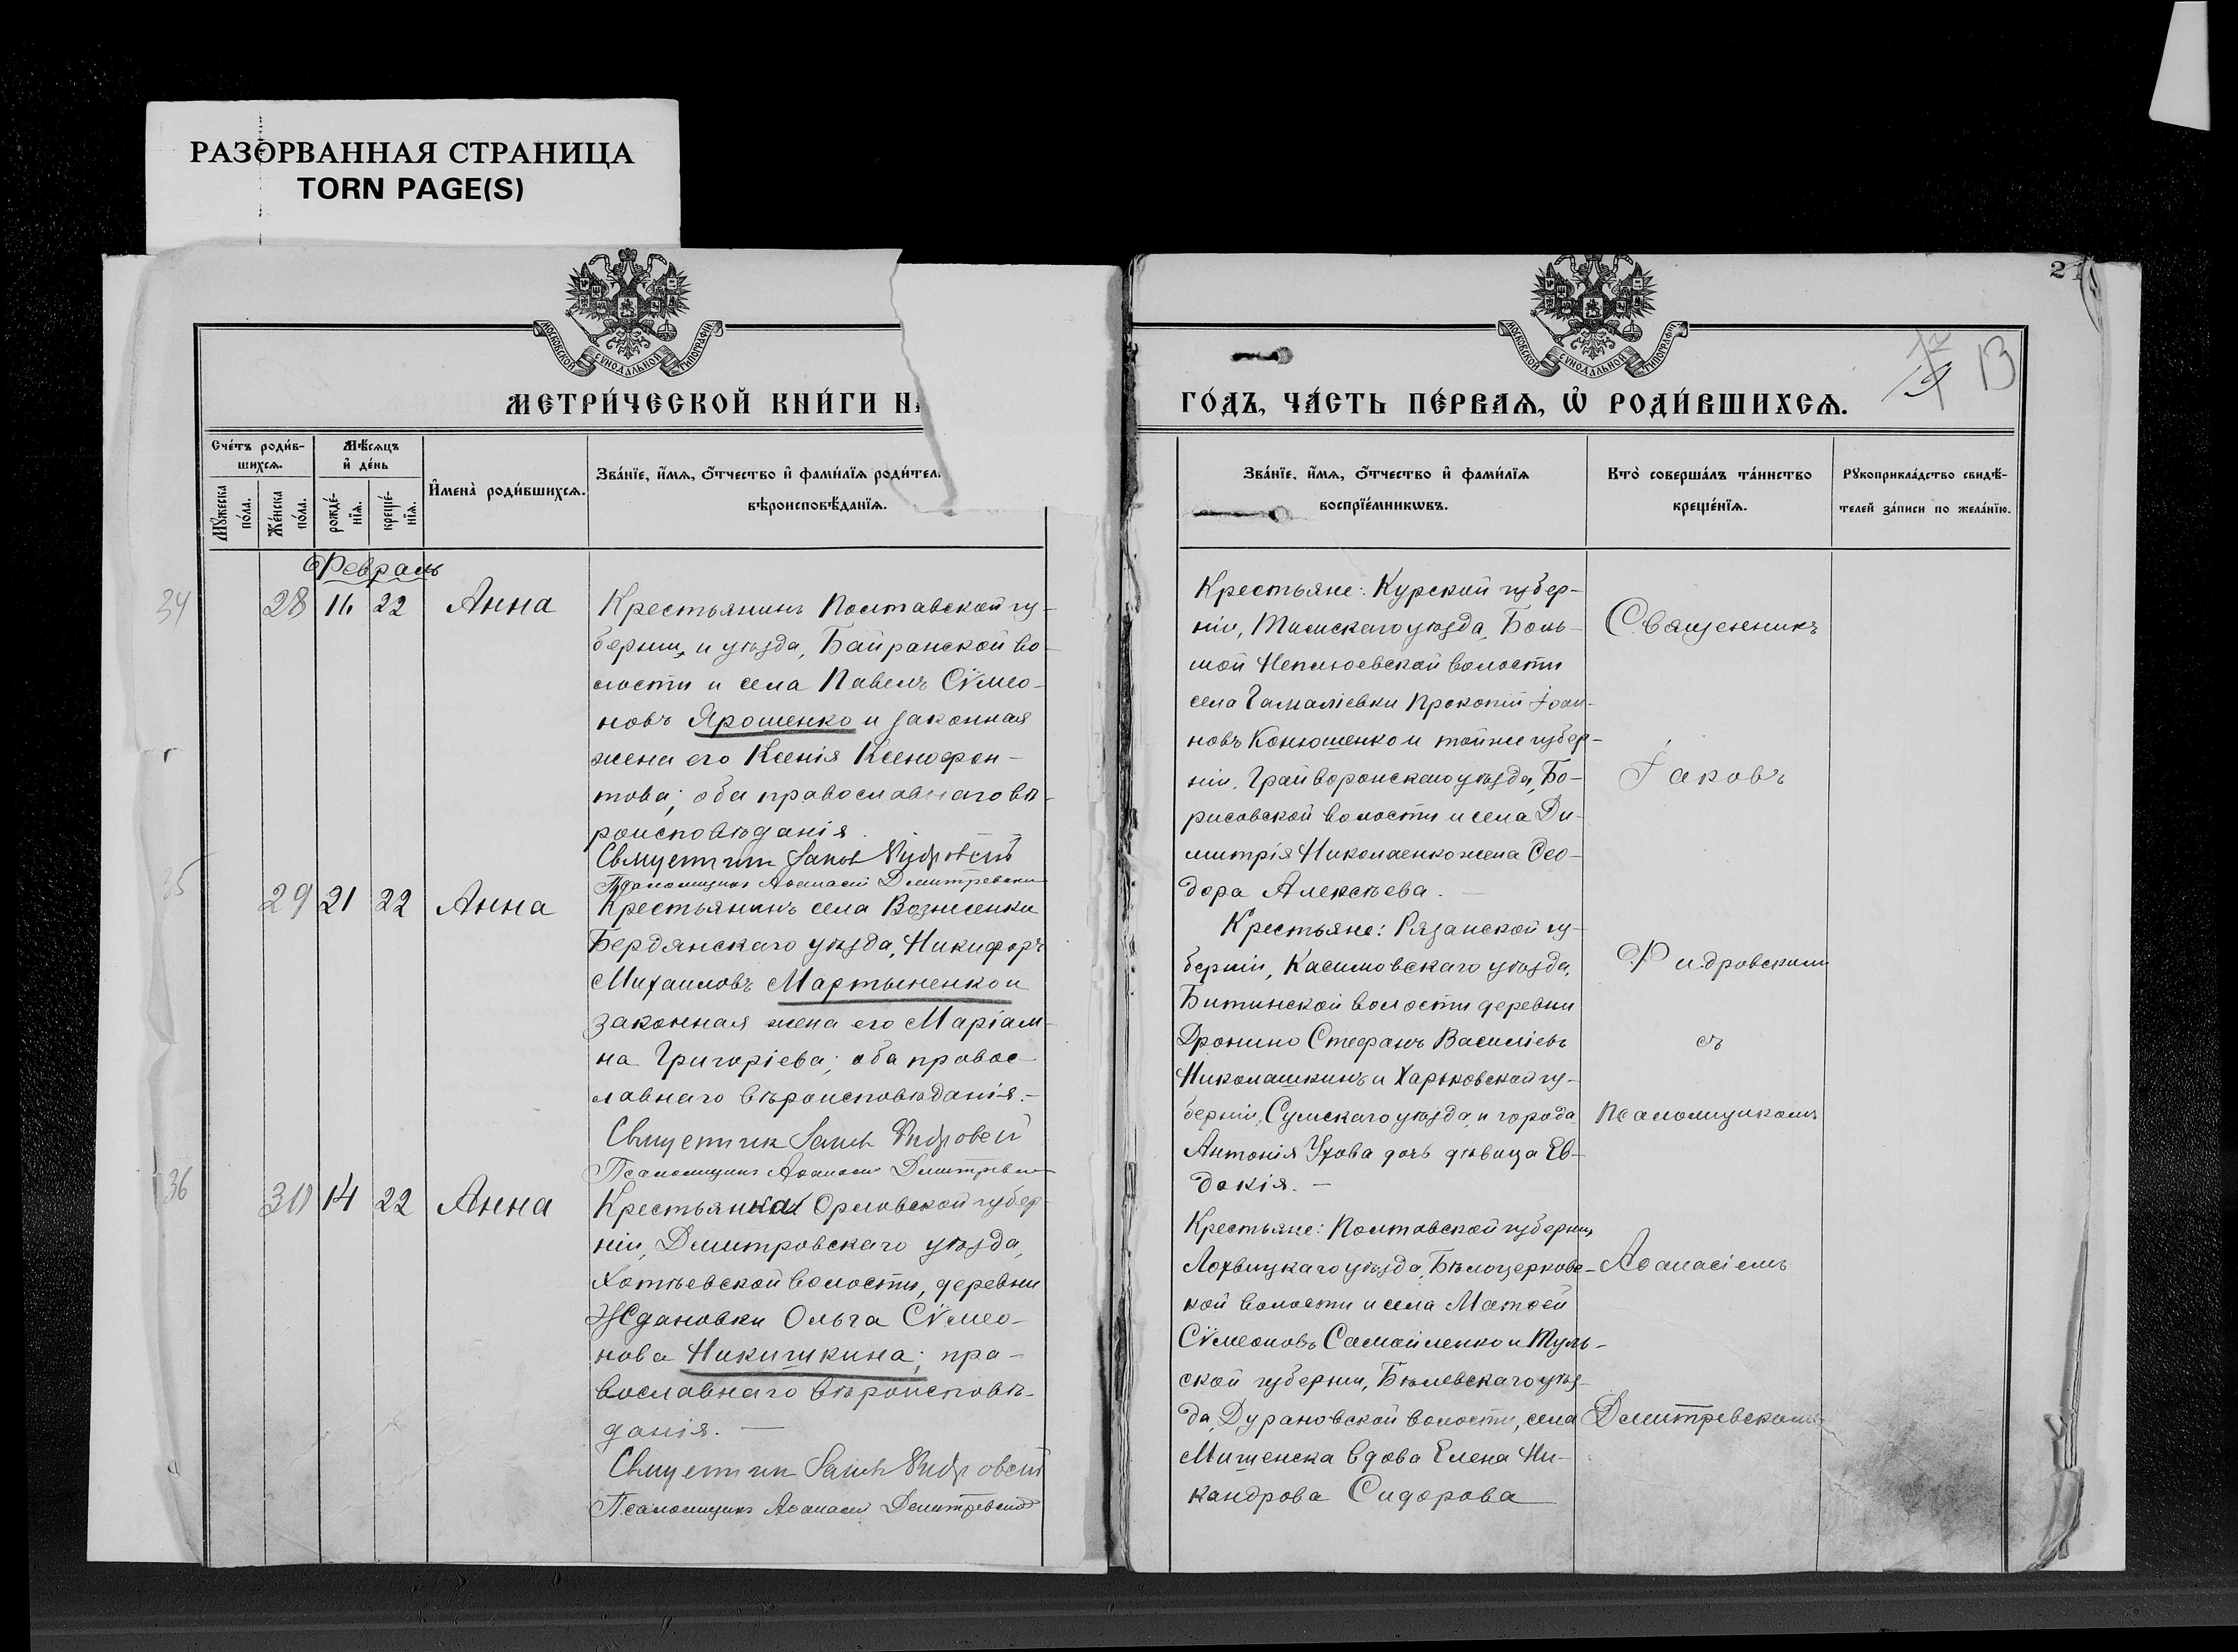 РАЗОРВАННАЯ СТРАНИЦА
TORN PAGE(S)
МОСКОВСКОЙ СѴНОДАЛЬНОЙ ТИПОГРАФІИ
МЕТРИ́ЧЕСКОЙ КНИ́ГИ НА
Сче́тъ роди́в-
шихсѧ.
Мѣ́сѧцъ
и҆ де́нь
Мꙋ́жеска
по́ла.
Же́нска
по́ла.
рожде́-
нїѧ.
креще́-
нїѧ.
И҆мена̀ роди́вшихсѧ.
Зва́нїе, и҆́мѧ, ѻ҆́тчество и҆ фами́лїѧ роди́тел
вѣроисповѣ́данїѧ.
Февраль
34 28 16 22 Анна
Крестьянинъ Полтавской гу-
берніи, и уѣзда, Байранской во-
лости и села Павелъ Сѵмео-
новъ Ярошенко и законная
жена его Ксенія Ксенофон-
това; оба православнаго вѣ-
роисповѣданія.
Священник Яков
Псаломщикъ Аѳанасій Дмитревскій
35 29 21 22 Анна
Крестьянинъ села Вознесенки
Бердянскаго уѣзда, Никифоръ
Михаиловъ Мартыненко и
законная жена его Маріам-
на Григоріева; оба правос-
лавнаго вѣроисповѣданія.-
Священник Яков
Псаломщикъ Аѳанасій Дмитревскій
36 30 14 22 Анна
Крестьянка Орловской губер-
ніи, Дмитровскаго уѣзда,
Хотѣевской волости, деревни
Ждановки Ольга Сѵмео-
нова Никишкина; пра-
вославнаго вѣроисповѣ-
данія. —
Священник Яков
Псаломщикъ Аѳанасій Дмитревскій
2
13
МОСКОВСКОЙ СѴНОДАЛЬНОЙ ТИПОГРАФІИ
ГО́ДЪ, ЧА́СТЬ ПЕ́РВАѦ, Ѡ҆ РОДИ́ВШИХСѦ.
Зва́нїе, и҆́мѧ, ѻ҆́тчество и҆ фами́лїѧ
воспрїе́мникѡвъ.
Кто̀ соверша́лъ та́инство
креще́нїѧ.
Рꙋкоприкла́дство свидѣ́-
телей за́писи по жела́нїю.
Крестьяне: Курской губер-
ніи, Тимскаго уѣзда, Боль-
шой Неплюевской волости
села Гамаліевки Прокопій Іоан-
новъ Конюшенко и тойже губер-
ніи, Грайворонскаго уѣзда, Бо-
рисовской волости и села Ди-
митрія Николаенко жена Ѳео-
дора Алексѣева. —
Крестьяне: Рязанской гу-
берніи, Касимовскаго уѣзда,
Битинской волости деревни
Дронино Стефанъ Василіевъ
Николашкинъ и Харьковской гу-
берніи, Сумскаго уѣзда, и города
Антонія Ухова дочь дѣвица Ев-
докія. —
Крестьяне: Полтавской губерніи,
Лохвицкаго уѣзда, Бѣлоцерковс-
кой волости и села Матѳей
Сѵмеоновъ Самойленко и Туль-
ской губерніи, Бѣлевскаго уѣз-
да, Дурановской волости, села
Мишенска вдова Елена Ни-
кандрова Сидорова
Священникъ
Іаковъ
съ
Псаломщикомъ
Аѳанасіемъ
Дмитревскимъ